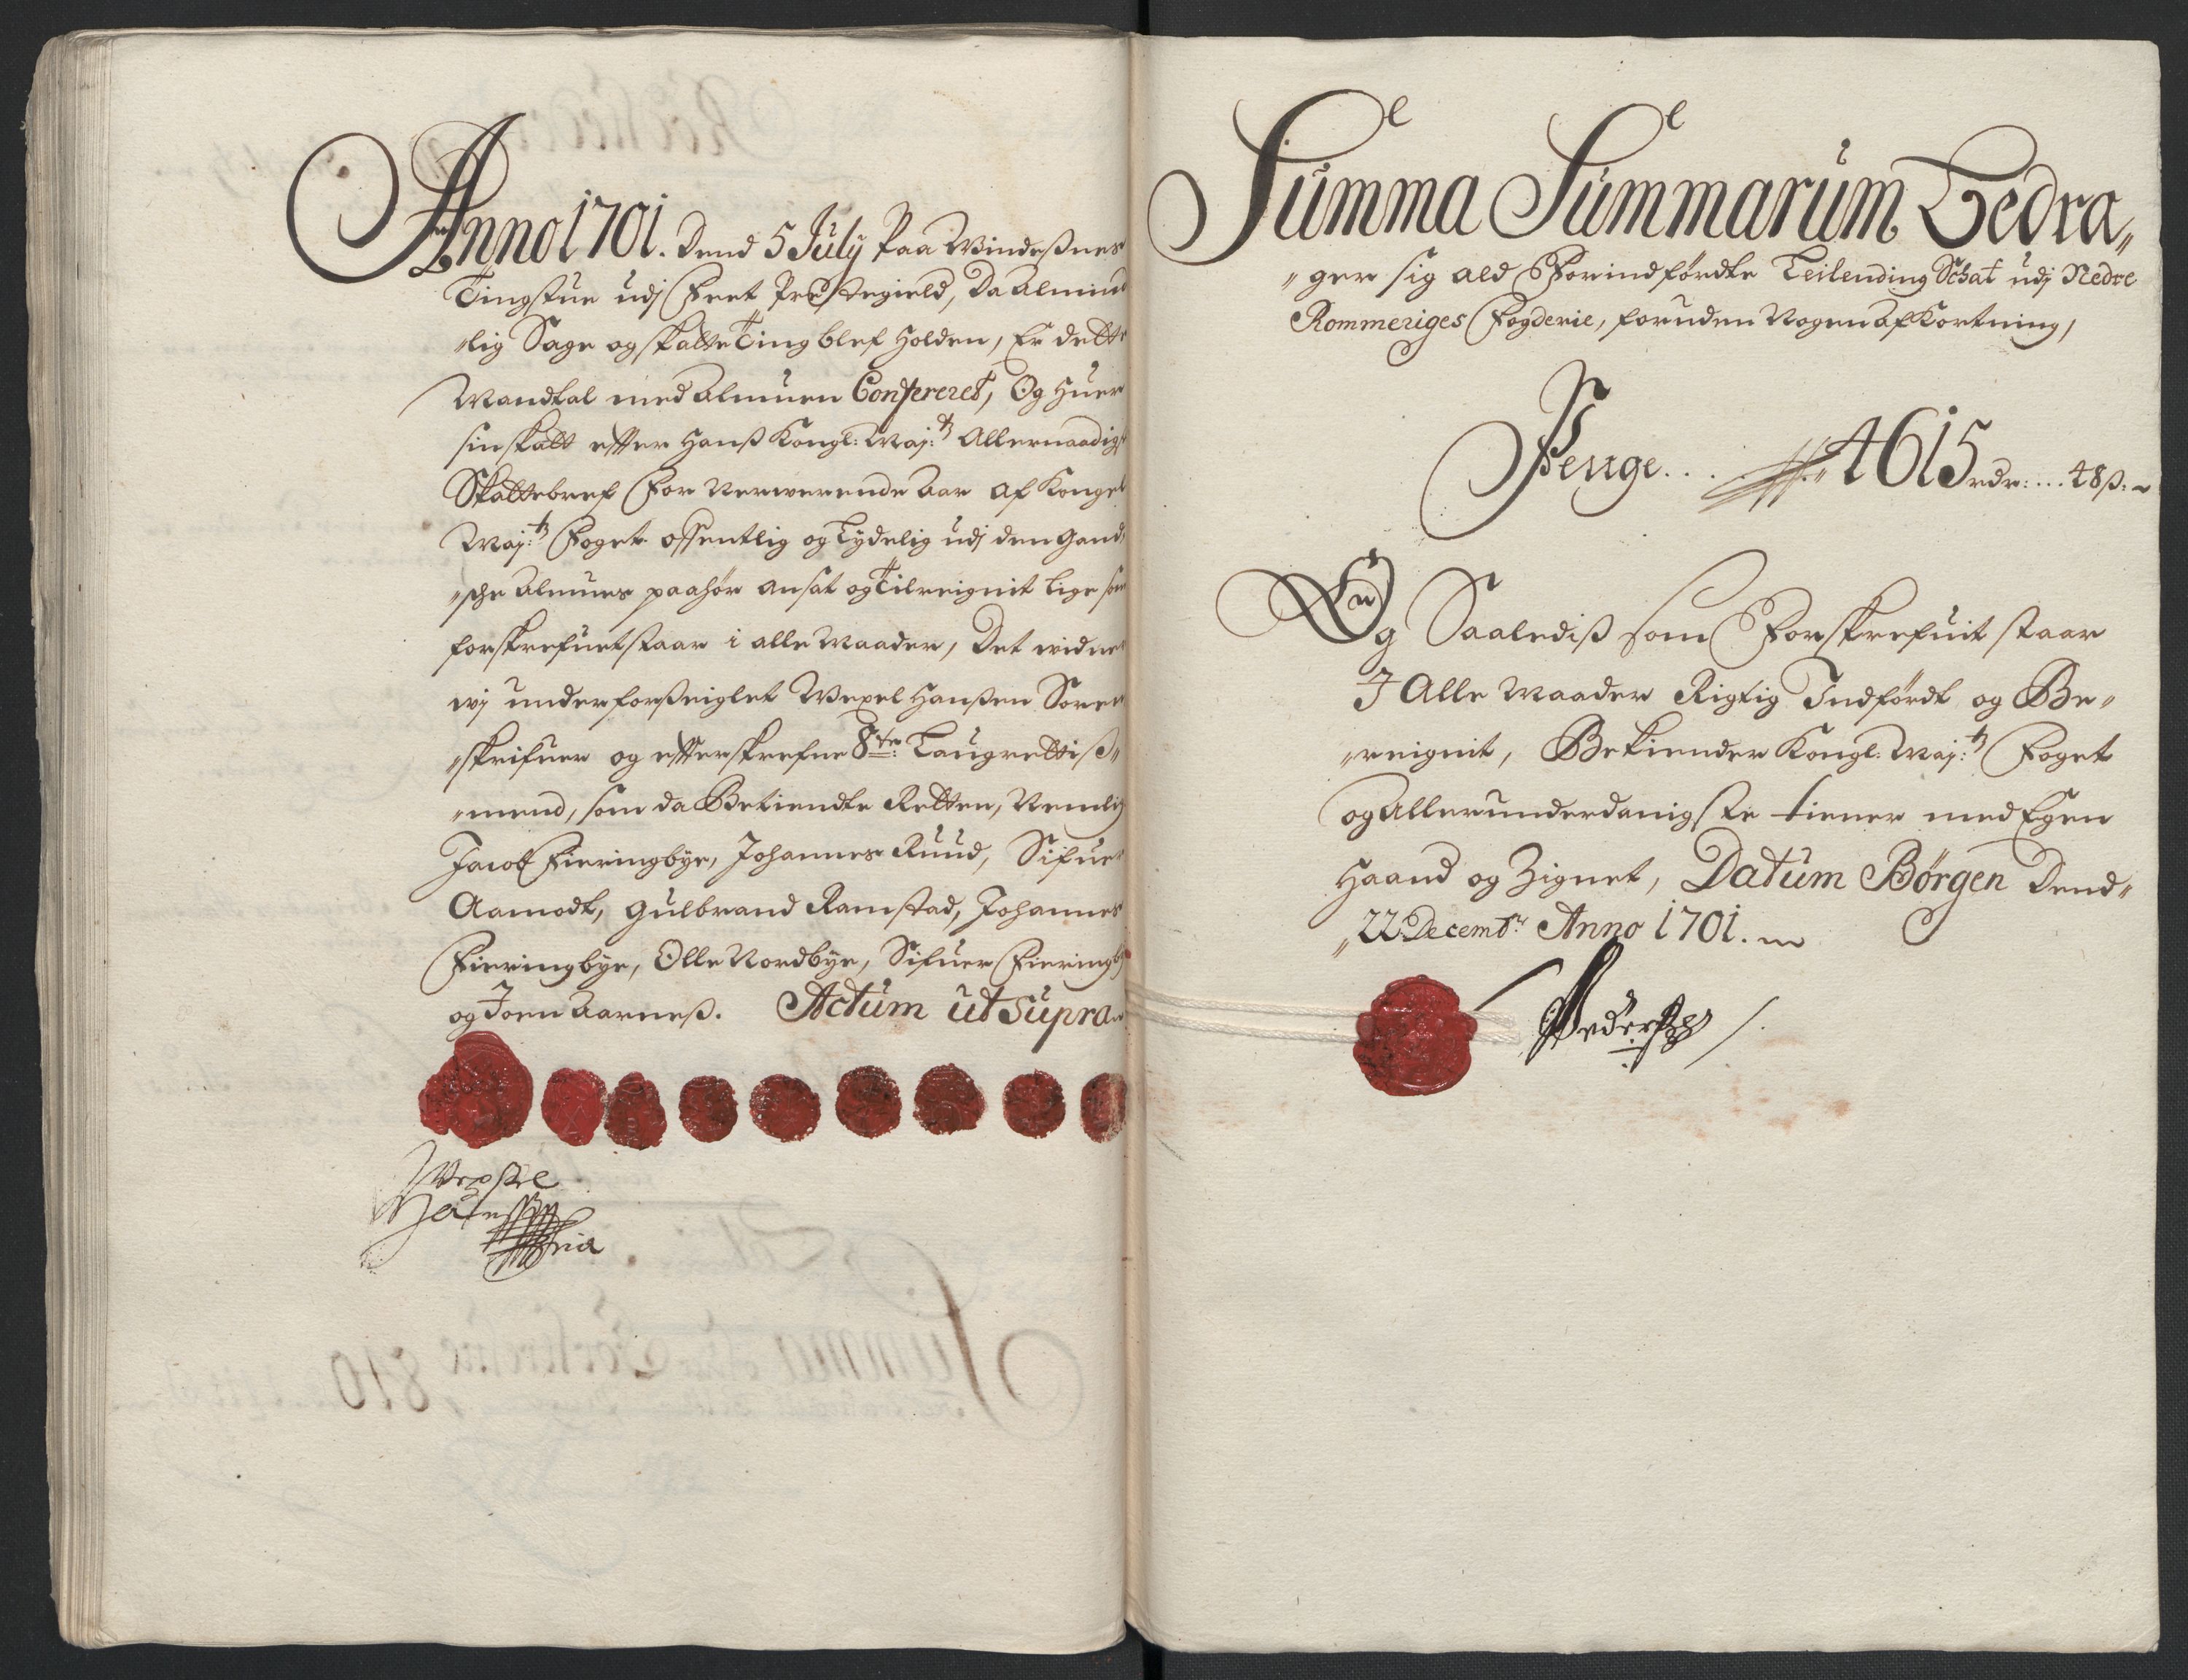 Anno 1701. Dend 5 Julÿ Paa Windeßnes
Tingstue udj Feet Prestegield, Da Almind
„lig Sage og skatte Ting blef holden, Er dette
Mandtal med Almuen Confereret, Og Huer
sin skatt effter Hanß Kongl: Maj:ts Allernaadigst
Skattebref For Nerwerende Aar af Kongel
Maj:ts Foget offentlig og Tydelig udj den Gand
„sche Almues paahør ansat og Tilreignit lige som
forskrefuet staar i alle Maader, Det widner
wj underforseiglet Wexel Hanßen Soren
„skrifuer og effterskrefne 8te: Laugrettiß„
„mend, som da Betiendte Retten, Nemlig
Jacob Fieringbye, Johannes Ruud, Sifuer
Aamodt, Gulbrand Ramstad, Johannes
Fieringbye, Olle Nordbye, Sifuer Fieringby
og Joen Aarneß. Actum ut Supra
Wexsel
Hanssøn
mria
Summa Summarum Bedra„
„ger sig ald Forindførdte Leilending Schat udj Nedre
Rommeriges Fogderie, foruden Nogen af Kortning,
Penge . . . . 4615 rdr: . . . 48 ß:
Og Saalediß som Forskrefuit staar
I Alle Maader Rigtig Indførdt og Be„
„reignit, Bekiender Kongl: Maj:ts Foget
og Allerunderdanigste tiener med Egen
Haand og Zignet, Datum Børgen Dend„
„22 Decembr: Anno 1701.